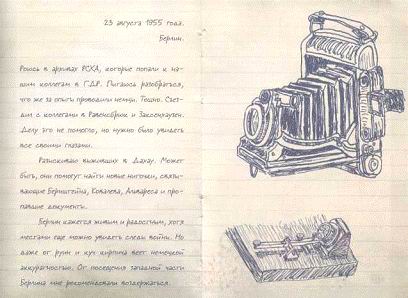 23 августа 1955 года.
Берлин.
Роюсь в архивах РСХА, которые попали к на-
шим коллегам в ГДР. Пытаюсь разобраться,
что же за опыты проводили немцы. Тошно. Съез-
дил с коллегами в Равенсбрюк и Заксенхаузен.
Делу это не помогло, но нужно было увидеть
все своими глазами.
Разыскиваю выживших в Дахау. Может
быть, они помогут найти новые ниточки, связы-
вающие Бернштейна, Ковалева, Альвареса и про-
павшие документы.
Берлин кажется живым и радостным, хотя
местами еще можно увидеть следы войны. Но
даже от руин и куч кирпича веет немецкой
аккуратностью. От посещения западной части
Берлина мне рекомендовали воздержаться.